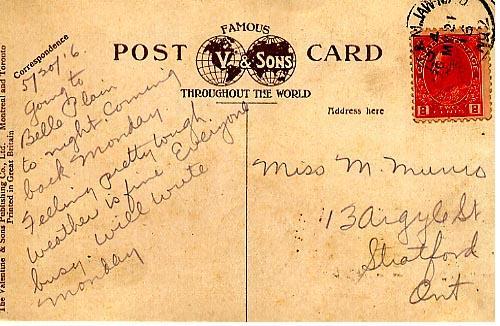 FAMOUS
POST CARD
V. & SONS
THROUGHOUT THE WORLD
Correspondence
Address here
The Valentine & Sons Publishing Co., Ltd. Montreal and Toronto
Printed in Great Britain
5/20/16.
Going to
Belle Plain
to night. Coming
back Monday
Feeling pretty tough.
Weather is fine Everyone
busy. Will write
Monday
Miss M. Munro
13 Argyle St.
Stratford
Ont.